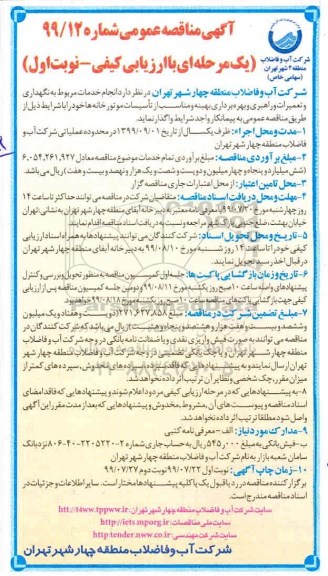 آگهی مناقصه عمومی شماره ۹۹/۱۲
(یک مرحله‌ای با ارزیابی کیفی - نوبت اول)
شرکت آب و فاضلاب
منطقه ۴ شهر تهران
(سهامی خاص)
شرکت آب و فاضلاب منطقه چهار شهر تهران در نظر دارد انجام خدمات مربوط به نگهداری
و تعمیرات و راهبری و بهره‌برداری بهینه و مناسب از تأسیسات موتورخانه‌ها خود را با شرایط ذیل از
طریق مناقصه عمومی به پیمانکار واجد شرایط واگذار نماید.
۱- مدت و محل اجراء: ظرف یکسال از تاریخ ۱۳۹۹/۰۹/۰۱ در محدوده عملیاتی شرکت آب و
فاضلاب منطقه چهار شهر تهران.
۲- مبلغ برآوردی مناقصه: مبلغ برآوردی تمام خدمات موضوع مناقصه معادل ۶.۰۵۴.۲۶۱.۹۲۷
(شش میلیارد و پنجاه و چهار میلیون و دویست و شصت و یک هزار و نهصد و بیست و هفت) ریال می‌باشد.
۳- محل تامین اعتبار: از محل اعتبارات جاری مناقصه گزار
۴- مهلت و محل دریافت اسناد مناقصه: متقاضیان شرکت در مناقصه می‌توانند حداکثر تا ساعت ۱۴
روز چهارشنبه مورخ ۹۹/۰۷/۳۰ با معرفی نامه معتبر به دبیرخانه آبفای منطقه چهار شهر تهران به نشانی: تهران
۵- تاریخ و محل تحویل اسناد: شرکت کنندگان می‌توانند پیشنهادها به همراه اسناد ارزیابی
کیفی خود را تا ساعت ۱۴ روز شنبه مورخ ۹۹/۰۸/۱۰ به دبیرخانه آبفای منطقه چهار شهر تهران
در قبال اخذ رسید تحویل نمایند.
۶- تاریخ و زمان بازگشایی پاکت‌ها: جلسه اول کمیسیون مناقصه به منظور تحویل و بررسی و کنترل
پیشنهادهای واصله ساعت ۱۰ صبح روز یکشنبه مورخ ۹۹/۰۸/۱۱ و دومین جلسه کمیسیون مناقصه پس از ارزیابی
کیفی جهت بازگشایی پاکت‌های مناقصه ساعت ۱۰ صبح روز یکشنبه مورخ ۹۹/۰۸/۱۸ خواهد بود.
۷- مبلغ تضمین شرکت در مناقصه: مبلغ ۲۷۱.۶۳۷.۸۵۸ ریال (دویست و هفتاد و یک میلیون
و ششصد و سی و هفت هزار و هشتصد و پنجاه و هشت) ریال می‌باشد که شرکت کنندگان در
مناقصه می‌توانند به صورت فیش واریزی نقدی و یا ضمانت نامه بانکی در وجه شرکت آب و فاضلاب
منطقه چهار شهر تهران و یا چک بانکی تضمینی در وجه شرکت آب و فاضلاب منطقه چهار شهر
تهران ارسال نمایند و به پیشنهادهای که فاقد سپرده یا سپرده‌های مخدوش، سپرده‌های کمتر از
میزان مقرر، چک شخصی و نظایر آن ترتیب اثر داده نخواهد شد.
۸- به پیشنهادهایی که در مرحله ارزیابی کیفی مردود اعلام شوند و پیشنهادهایی که فاقد امضای
اسناد مناقصه و پیوست‌های آن، مشروط، مخدوش و پیشنهادهایی که بعد از مدت مقرر این آگهی
واصل شود مطلقا ترتیب اثر داده نخواهد شد.
۹- مدارک مورد نیاز: الف- معرفی نامه کتبی
۱۰- زمان چاپ آگهی: نوبت اول ۹۹/۰۷/۲۲ نوبت دوم ۹۹/۰۷/۲۷
برگزار کننده مناقصه در رد یا قبول یک یا کلیه پیشنهادها مختار است. سایر اطلاعات و جزئیات در
اسناد مناقصه مندرج است.
سایت شرکت آب و فاضلاب منطقه چهار شهر تهران: http://t4ww.tppww.ir
سایت ملی مناقصات: http://iets.mporg.ir
سایت شرکت مهندسی: http:tender.nww.co.ir
شرکت آب و فاضلاب منطقه چهار شهر تهران